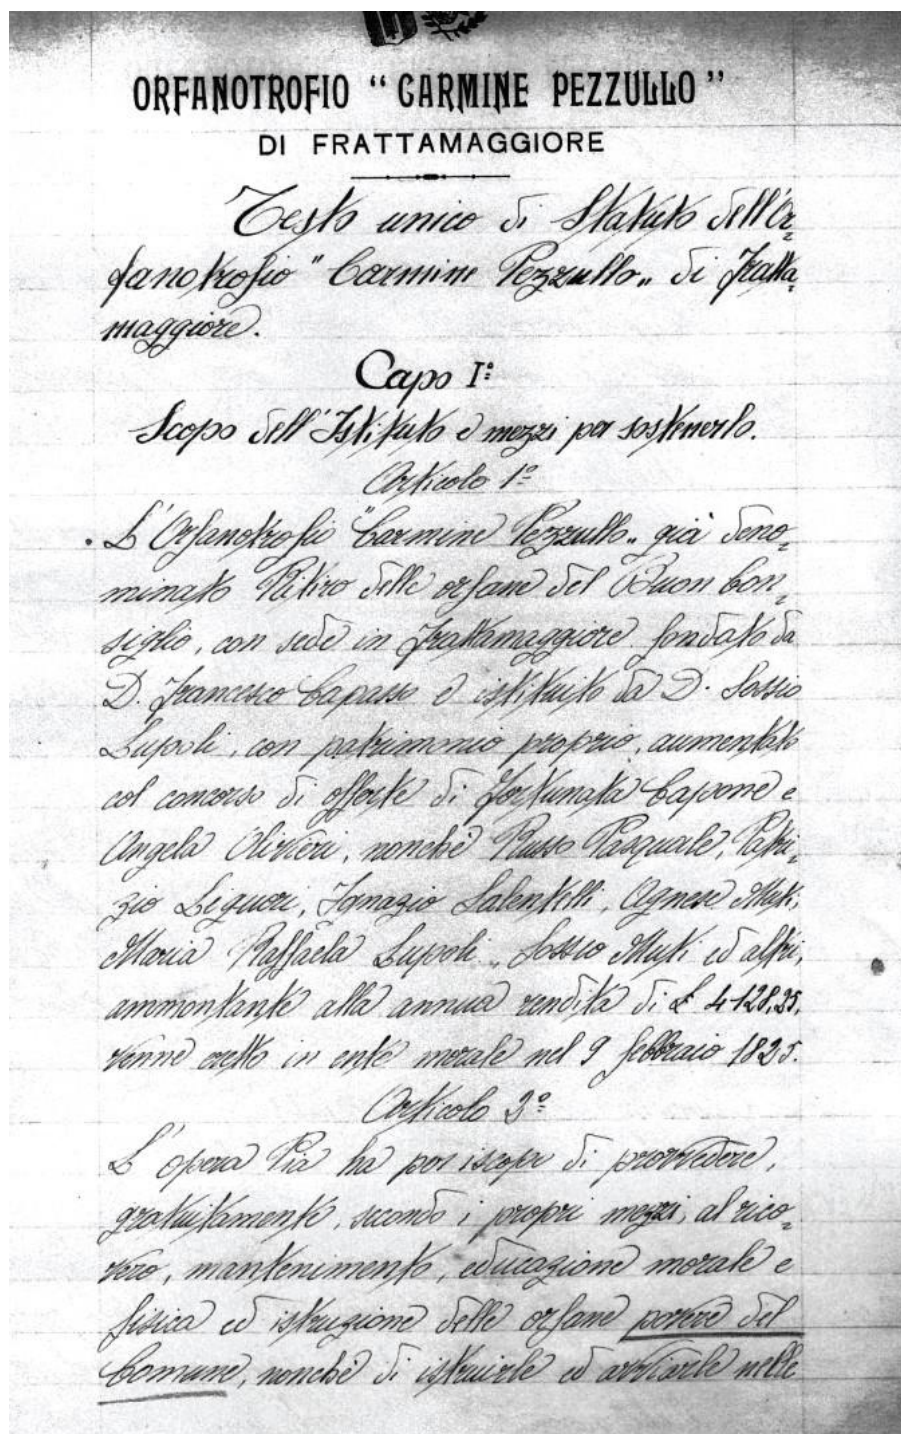 ORFANOTROFIO “CARMINE PEZZULLO”
DI FRATTAMAGGIORE
Testo unico di Statuto dell'Or=
fanotrofio "Carmine Pezzullo„ di Fratta=
maggiore.
Capo I°:
Scopo dell'Istituto e mezzi per sostenerlo.
Articolo 1°
L'Orfanotrofio "Carmine Pezzullo„ già deno=
minato Ritiro delle orfane del Buon Con=
siglio, con sede in Frattamaggiore fondato da
D. Francesco Capasso e istituito da D. Sossio
Lupoli, con patrimonio proprio, aumentato
col concorso di offerte di Fortunata Capone e
Angela Olivieri, nonchè Russo Pasquale, Patri=
zio Liguori, Ignazio Salentelli, Agnese Muti,
Maria Raffaela Lupoli, Sossio Muti ed altri,
ammontante alla annua rendita di £ 4128,25,
venne eretto in ente morale nel 9 febbraio 1825.
Articolo 2°
L'opera Pia ha per iscopo di provvedere,
gratuitamente, secondo i propri mezzi, al rico=
vero, mantenimento, educazione morale e
fisica ed istruzione delle orfane povere del
Comune, nonchè di istruirle ed avviarle nelle